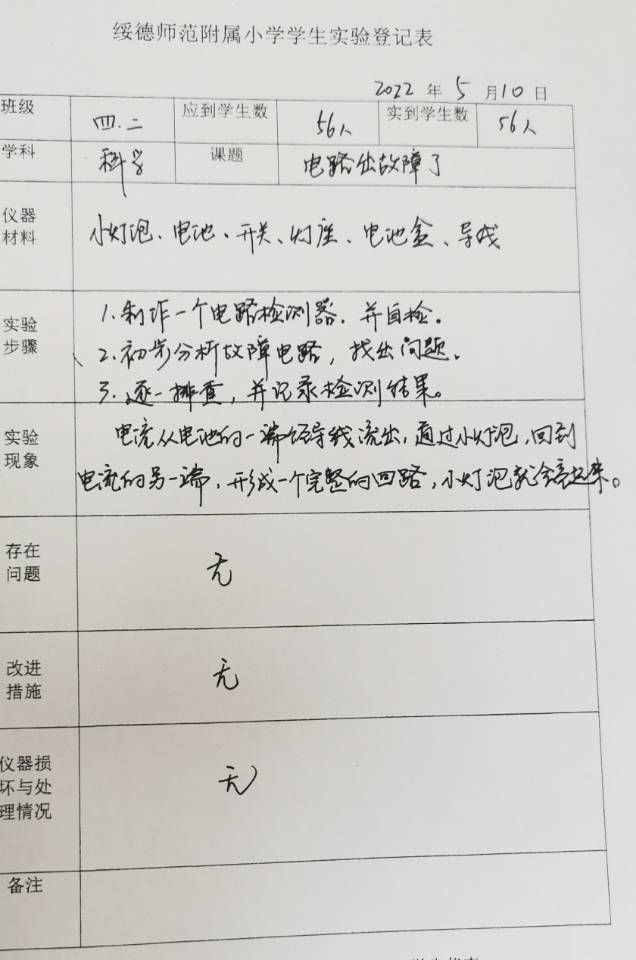 绥德师范附属小学学生实验登记表
2022 年 5 月 10 日
班级 四.二 应到学生数 56人 实到学生数 56人
学科 科学 课题 电路出故障了
仪器
材料
小灯泡、电池、开关、灯座、电池盒、导线
实验
步骤
1.制作一个电路检测器.并自检。
2.初步分析故障电路,找出问题.
3.逐一排查,并记录检测结果。
实验
现象
电流从电池的一端经导线流出,通过小灯泡,回到
电流的另一端,形成一个完整的回路,小灯泡就会亮起来。
存在
问题
无
改进
措施
无
仪器损
坏与处
理情况
无
备注